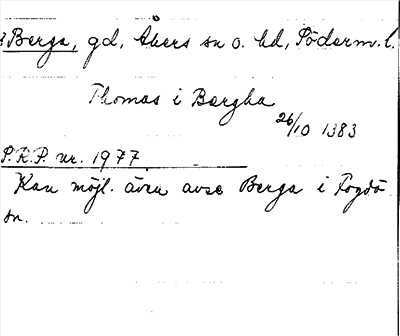 ? Berga, gd, Åkers sn o. hd, Söderm. l.
Thomas i Bergha
26/10 1383
S.R.P. nr. 1977
Kan möjl. även avse Berga i Fogdö
sn.